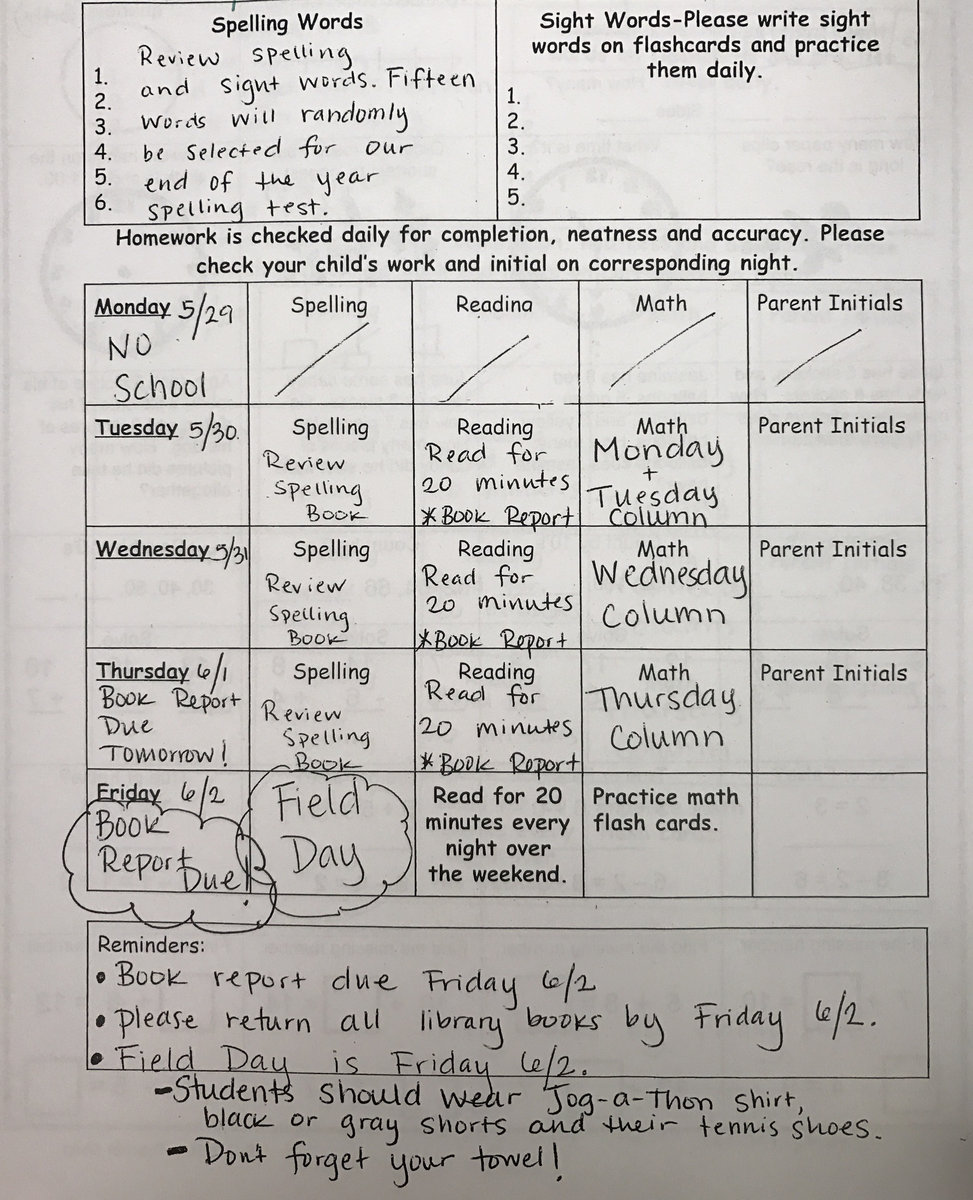 Spelling Words
Review spelling
1. and sight words. Fifteen
2.
3. words will randomly
4. be selected for our
5. end of the year
6. spelling test.
Sight Words-Please write sight
words on flashcards and practice
them daily.
1.
2.
3.
4.
5.
Homework is checked daily for completion, neatness and accuracy. Please
check your child's work and initial on corresponding night.
Monday 5/29
NO
School
Spelling
Reading
Math
Parent Initials
Tuesday 5/30
Spelling
Review
Spelling
Book
Reading
Read for
20 minutes
*Book Report
Math
Monday
+
Tuesday
Column
Parent Initials
Wednesday 5/31
Spelling
Review
Spelling
Book
Reading
Read for
20 minutes
*Book Report
Math
Wednesday
Column
Parent Initials
Thursday 6/1
Book Report
Due
Tomorrow!
Spelling
Review
Spelling
Book
Reading
Read for
20 minutes
*Book Report
Math
Thursday
Column
Parent Initials
Friday 6/2
Book
Report
Due!
Field
Day
Read for 20
minutes every
night over
the weekend.
Practice math
flash cards.
Reminders:
• Book report due Friday 6/2
• please return all library books by Friday 6/2.
• Field Day is Friday 6/2.
- Students should wear Jog-a-Thon shirt,
black or gray shorts and their tennis shoes.
- Don't forget your towel!